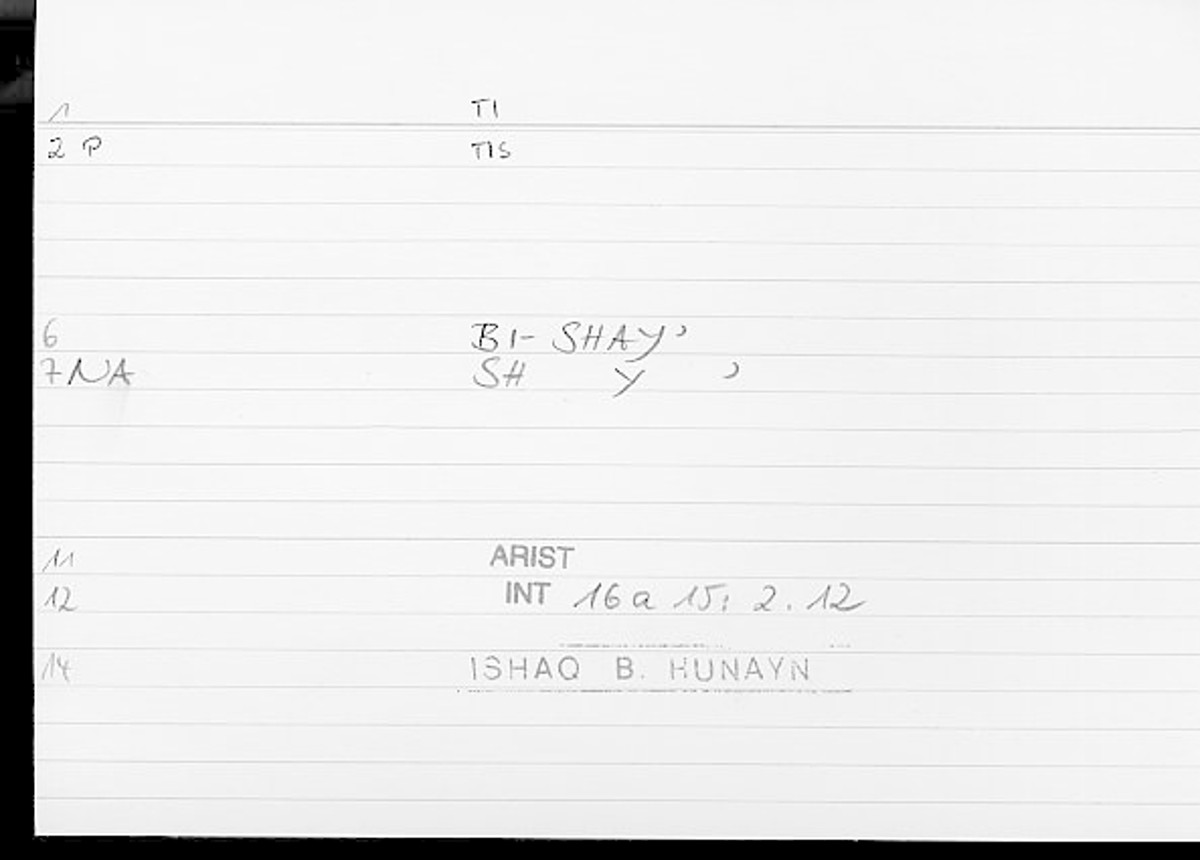 1 TI
2 P TIS
6 BI- SHAY'
7 NA SH Y '
11 ARIST
12 INT 16 a 15; 2.12
14 ISHAQ B. HUNAYN